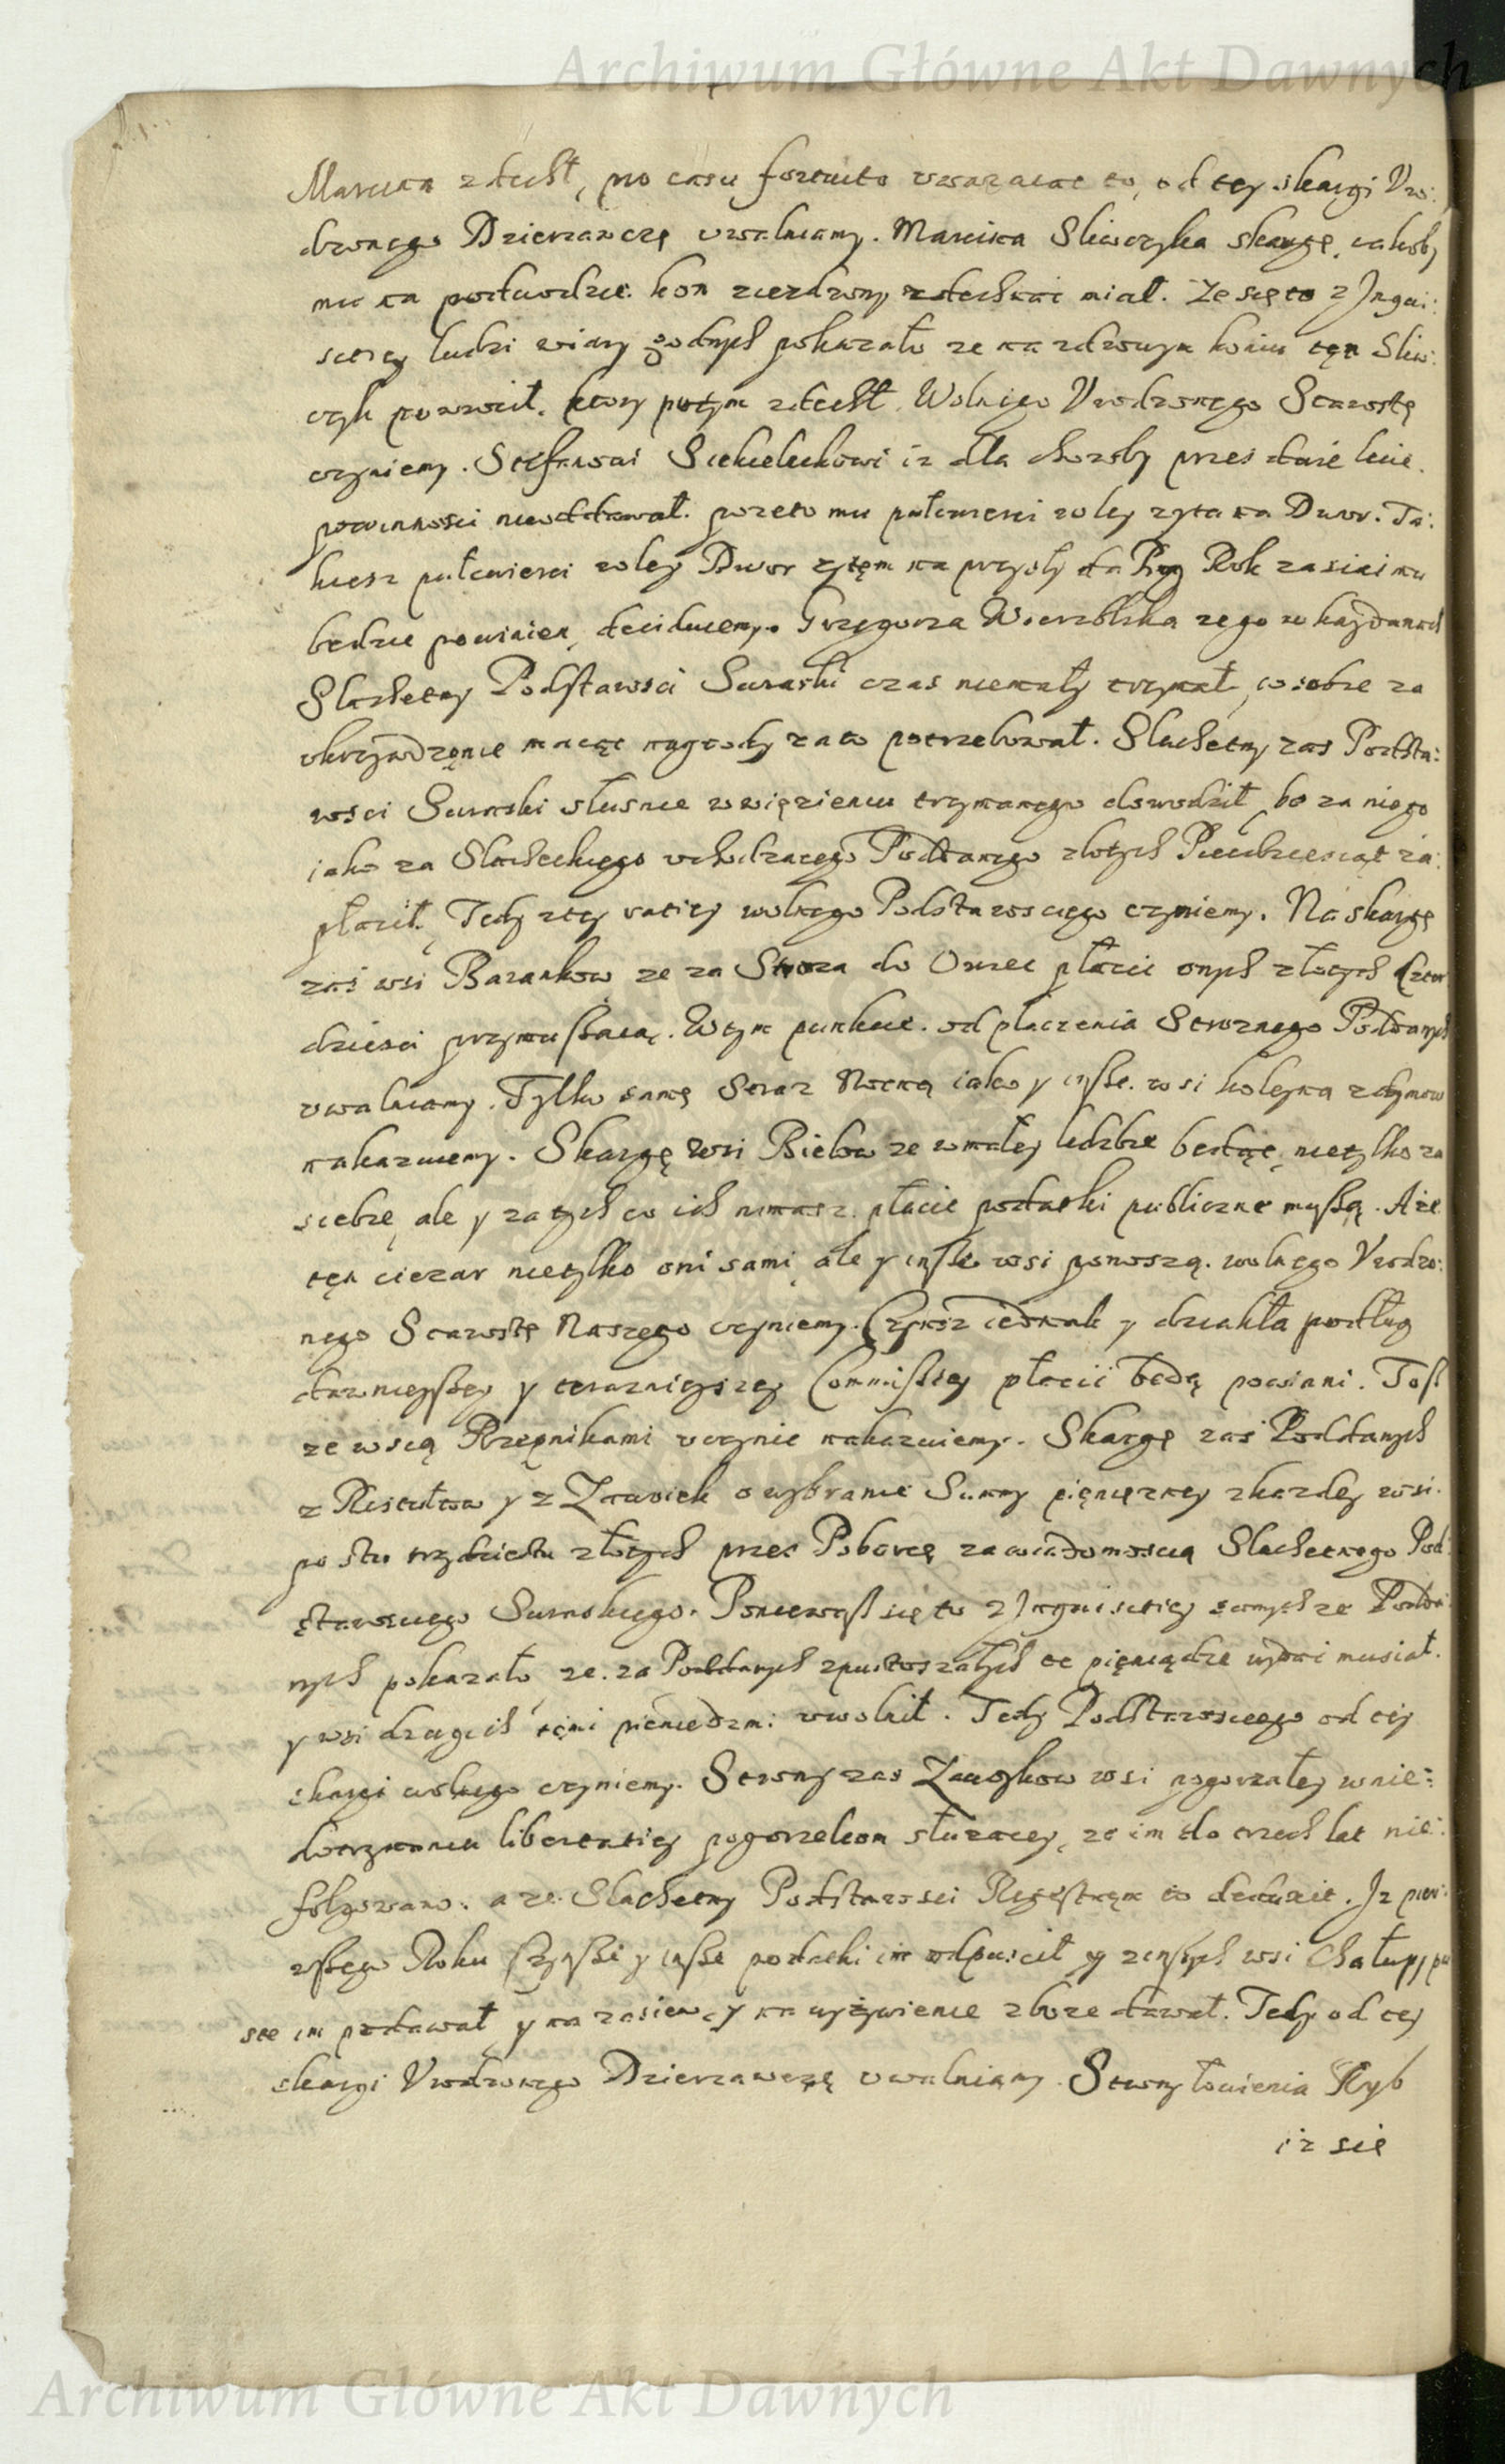 Archiwum Główne Akt Dawnych
Marcina zdechł, pro casu fortuito uwazaiąc to, od tey skargi Vro:
dzonego Dzierzawcę uwalniamy. Marcina Sliwczyka skargę, iakoby
mu na podwodzie kon zdrowy zdechnąć miał. Ze się to z Inqui:
siticy ludzi wiary godnych pokazało ze na zdrowym koniu ten Sliw:
czyk powrocił, ktory potym zdechł. Wolnego Vrodzonego Starostę
czyniemy. Stefanowi Siekieluchowi iz dla choroby przez dwie lecie
powinnosci nieoddawał. przeto mu puł cwierci roley zyta na Dwor. Ta:
kiesz puł cwierci roley Dwor zytem na przyszły da Bog Rok zasiaimu
bedzie powinien, deciduiemy. Grzegorza Wierzbicka zego w kaydanach
Slachetny Podstarosci Suraski czas niemały trzymał, co sobie za
ukrzywdzenie maiąc nagrody za to potrzebował. Slachetny zas Podsta:
rosci Suraski słusnie w więzieniu trzymanego dowodził, bo za niego
iako za Slacheckiego uchodzacego Poddanego złotych Piecdziesiąt za:
płacił. Tedy z tey ratiey wolnego Podstarosciego czyniemy. Na skargę
zas wsi Barankow ze za Stroza do Omiec płacic onych złotych Czter
dziesci przymuszaią. W tym punkcie od płaczenia Stroznego Poddanych
uwalniamy. Tylko samę Straz Nocną iako y insze wsi koleyną z dymow
nakazuiemy. Skargę wsi Bielow ze w małey liczbie będąc, nietylko za
siebie, ale y za tych co ich niemasz płacic podatki publiczne muszą. A ze
ten ciezar nietylko oni sami, ale y insze wsi ponoszą. wolnego Vrodzo:
nego Starostę Naszego czyniemy. Czynsz iednak y dziakła podług
dawnieyszey y teraznieyszey Commissiey płacic będą powinni. Tosz
ze wsią Rzepnikami uczynic nakazuiemy. Skargę zas Poddanych
z Pisculow y z Zawiek o wybranie Summy pienięzney z kazdey wsi.
po stu trzydziestu złotych przez Poborcę za wiadomoscią Slachetnego Pod
starosciego Suraskiego. Poniewasz się to z Inquisitiey samych ze Podda
nych pokazało, ze za Poddanych zpustoszałych te pieniądze wydac musiał.
y wsi drugich temi pieniedzmi uwolnił. Tedy Podstarosciego od tey
skargi wolnego czyniemy. Strony zas Zawykow wsi pogorzałey w nie:
dotrzymaniu libertatiey pogorzelcom słuzacey, ze im do trzech lat nie:
folgowano. a ze Slachetny Podstarosci Regestrem to deducit. Iz pier:
wszego Roku czynsze y insze podatki im odpuscił y z inszych wsi Chałupy pu
ste im podawał y na zasiew, y na wyzywienie zboze dawał. Tedy od tey
skargi Vrodzonego Dzierzawcę uwalniamy. Strony łowienia Ryb
iz się
Archiwum Główne Akt Dawnych